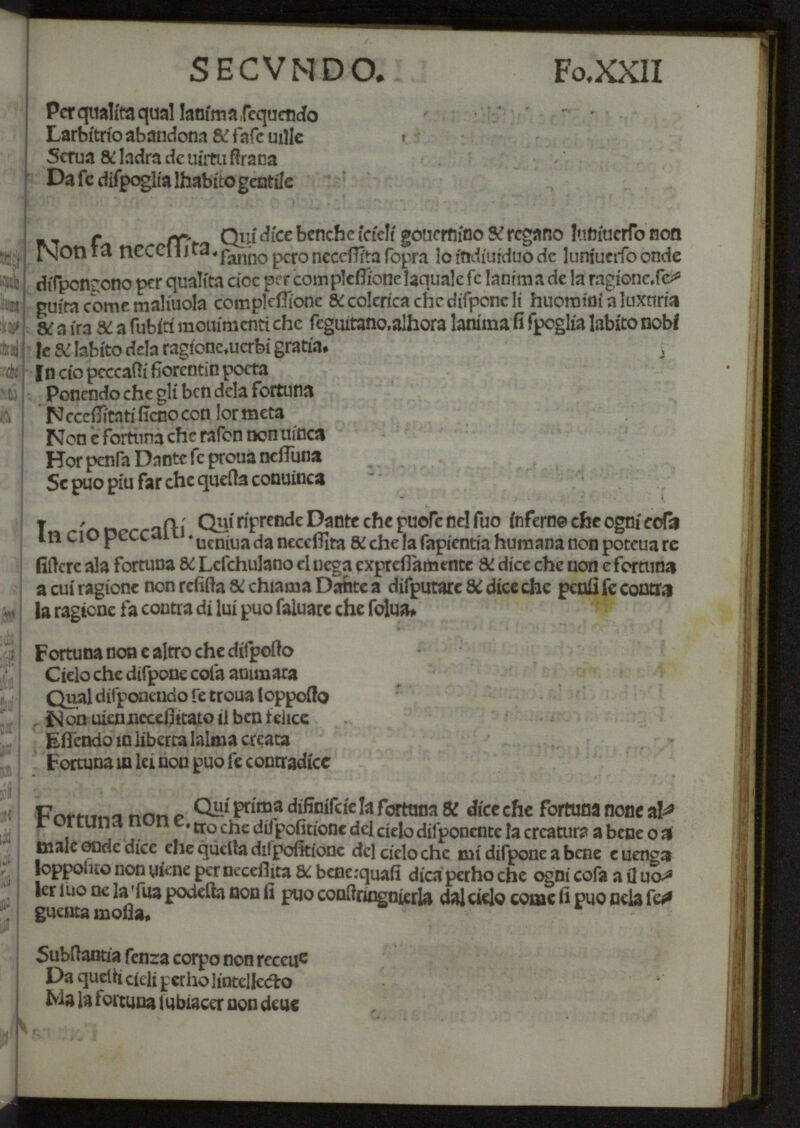 SECVNDO. Fo.XXII
Per qualita qual lanima sequendo
Larbitrio abandona & fase uille
Serua & ladra de uirtu strana
Da se dispoglia lhabito gentile
Non fa necessita. Qui dice benche icieli gouernino & regano luniuerso non
fanno pero necessita sopra lo indiuiduo de luniuerso onde
dispongono per qualita cioe per complessione laquale se lanima de la ragione.se⸗
guita come maliuola complessione & colerica che dispone li huomini a luxuria
& a ira & a subiti mouimenti che seguitano.alhora lanima si spoglia labito nobi
le & labito dela ragione.uerbi gratia.
In cio peccasti fiorentin poeta
Ponendo che gli ben dela fortuna
Necessitati sieno con lor meta
Non e fortuna che rason non uinca
Hor pensa Dante se proua nessuna
Se puo piu far che questa conuinca
In cio peccasti. Qui riprende Dante che puose nel suo inferno che ogni cosa
ueniua da necessita & che la sapientia humana non poteua re
sistere ala fortuna & Leschulano el nega expressamente & dice che non e fortuna
a cui ragione non resista & chiama Dante a disputare & dice che pensi se contra
la ragione fa contra di lui puo saluare che solua.
Fortuna non e altro che disposto
Cielo che dispone cosa animata
Qual disponendo se troua lopposto
Non uien necessitato il ben felice
Essendo in liberta lalma creata
Fortuna in lei non puo se contradice
Fortuna non e. Qui prima difiniscie la fortuna & dice che fortuna none al⸗
tro che dispositione del cielo disponente la creatura a bene o a
male onde dice che questa dispositione del cielo che mi dispone a bene e uenga
lopposito non uiene per necessita & bene:quasi dica perho che ogni cosa a il uo⸗
ler suo ne la sua podesta non si puo constringnierla dal cielo come si puo nela se⸗
guenta mossa.
Substantia senza corpo non receue
Da questi cieli perho lintellecto
Ma la fortuna subiacer non deue